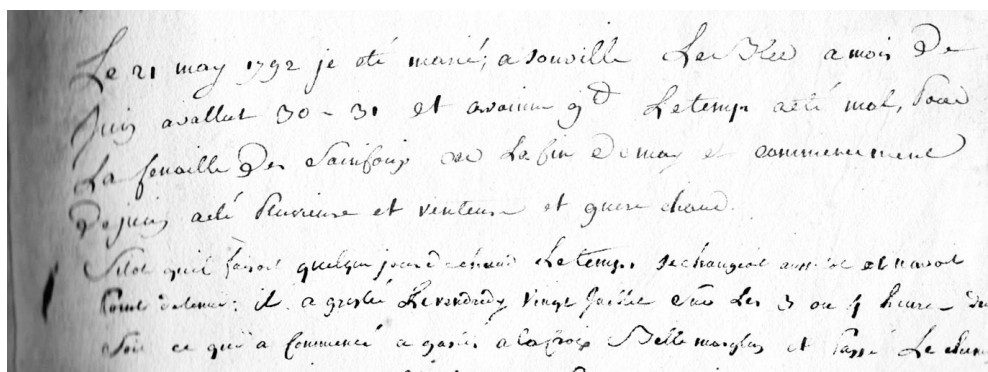 Le 21 may 1792 je eté marié, a Jouville Le Bled a mois de
Juin avallut 30 - 31 et avoinne 9ᵗᵗ Le temp a eté mol, Pour
La fenaille Des Sainfoins La fin De may et commencement
De juin a eté Pluvieuse et venteuse et guere chaud.
Sitot qu'il faisoit quelque jour de chaud Le temps se changeoit aussitot et navoit
Point de tenue; il a greslé Le vendredy vingt Juillet Sur Les 3 ou 4 heure - du
Soir ce qui a Commencé a a la Croix Belle et Passé Le